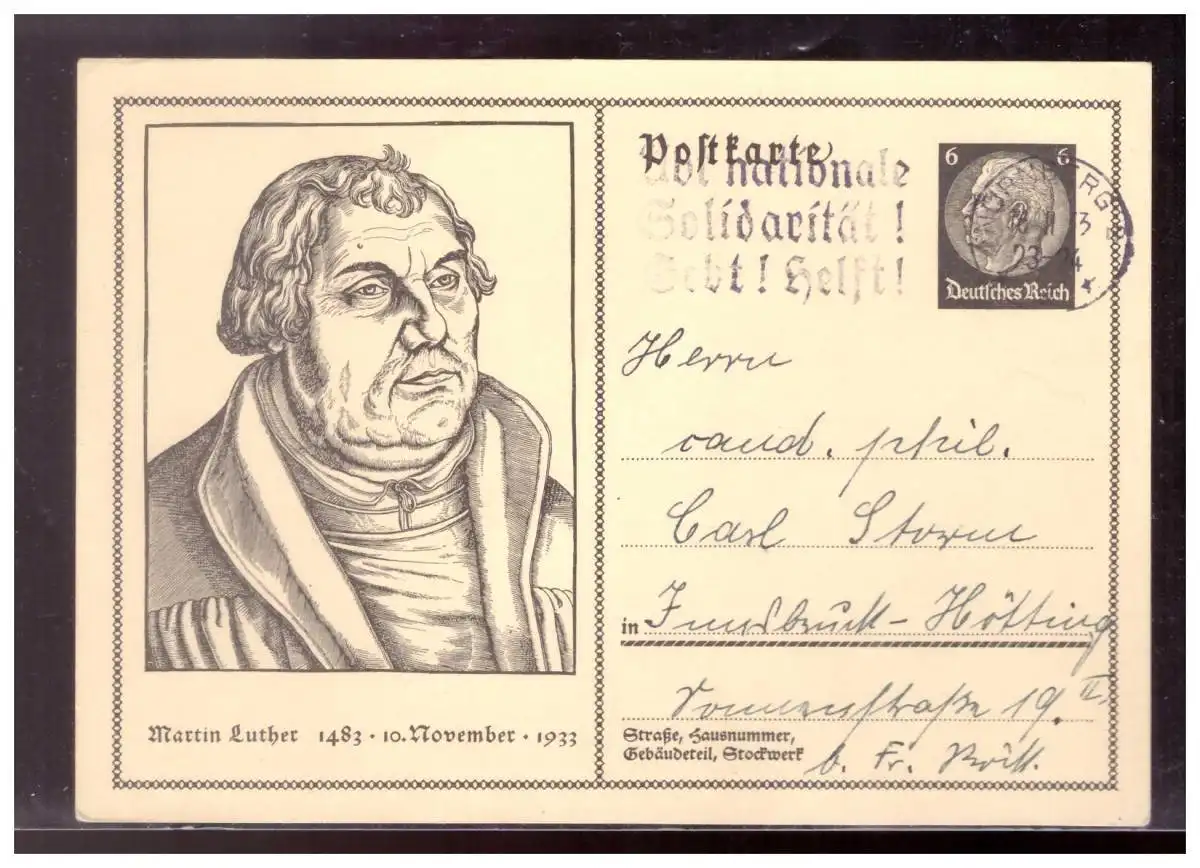 Martin Luther 1483 · 10. November · 1933
Postkarte
nationale
Solidarität!
Gebt! Helft!
6 6
Deutsches Reich
23-24
Herrn
cand. phil.
Carl Storm
in Innsbruck - Hötting
Sonnenstraße 19. II.
Straße, Hausnummer,
Gebäudeteil, Stockwerk
b. Fr.